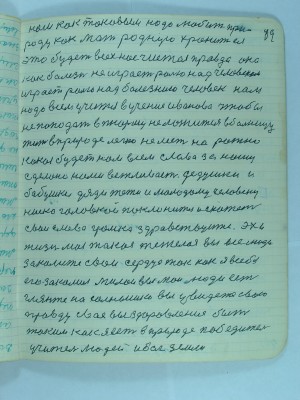 89
нам как таковым надо любит при-
роду как мат родную хранится
это будет всех нас чистая правда она
как болезн не играет ролю над человеком
играет ролю над болезнию человек нам
надо всем учится в учение иванова чтобы
не попадат в тюрму не ложится в больницу
жит в природе легко не лет на рожно
какая будет нам всем слава за нашу
сделано нами вежливост дедушки и
бабушка дяди тети и молодому человеку
низко головкой поклонится и скажем
свои слова громко здравствуйте. эх и
жизня моя такая тежелая вы все люди
закалите свое сердце так как я себе
его закалил милои вы мои люди ест
гляньте на солнышко вы увидете свою
правду свое выздоровления быт
таким как я ест в природе победител
учител людей и все земли